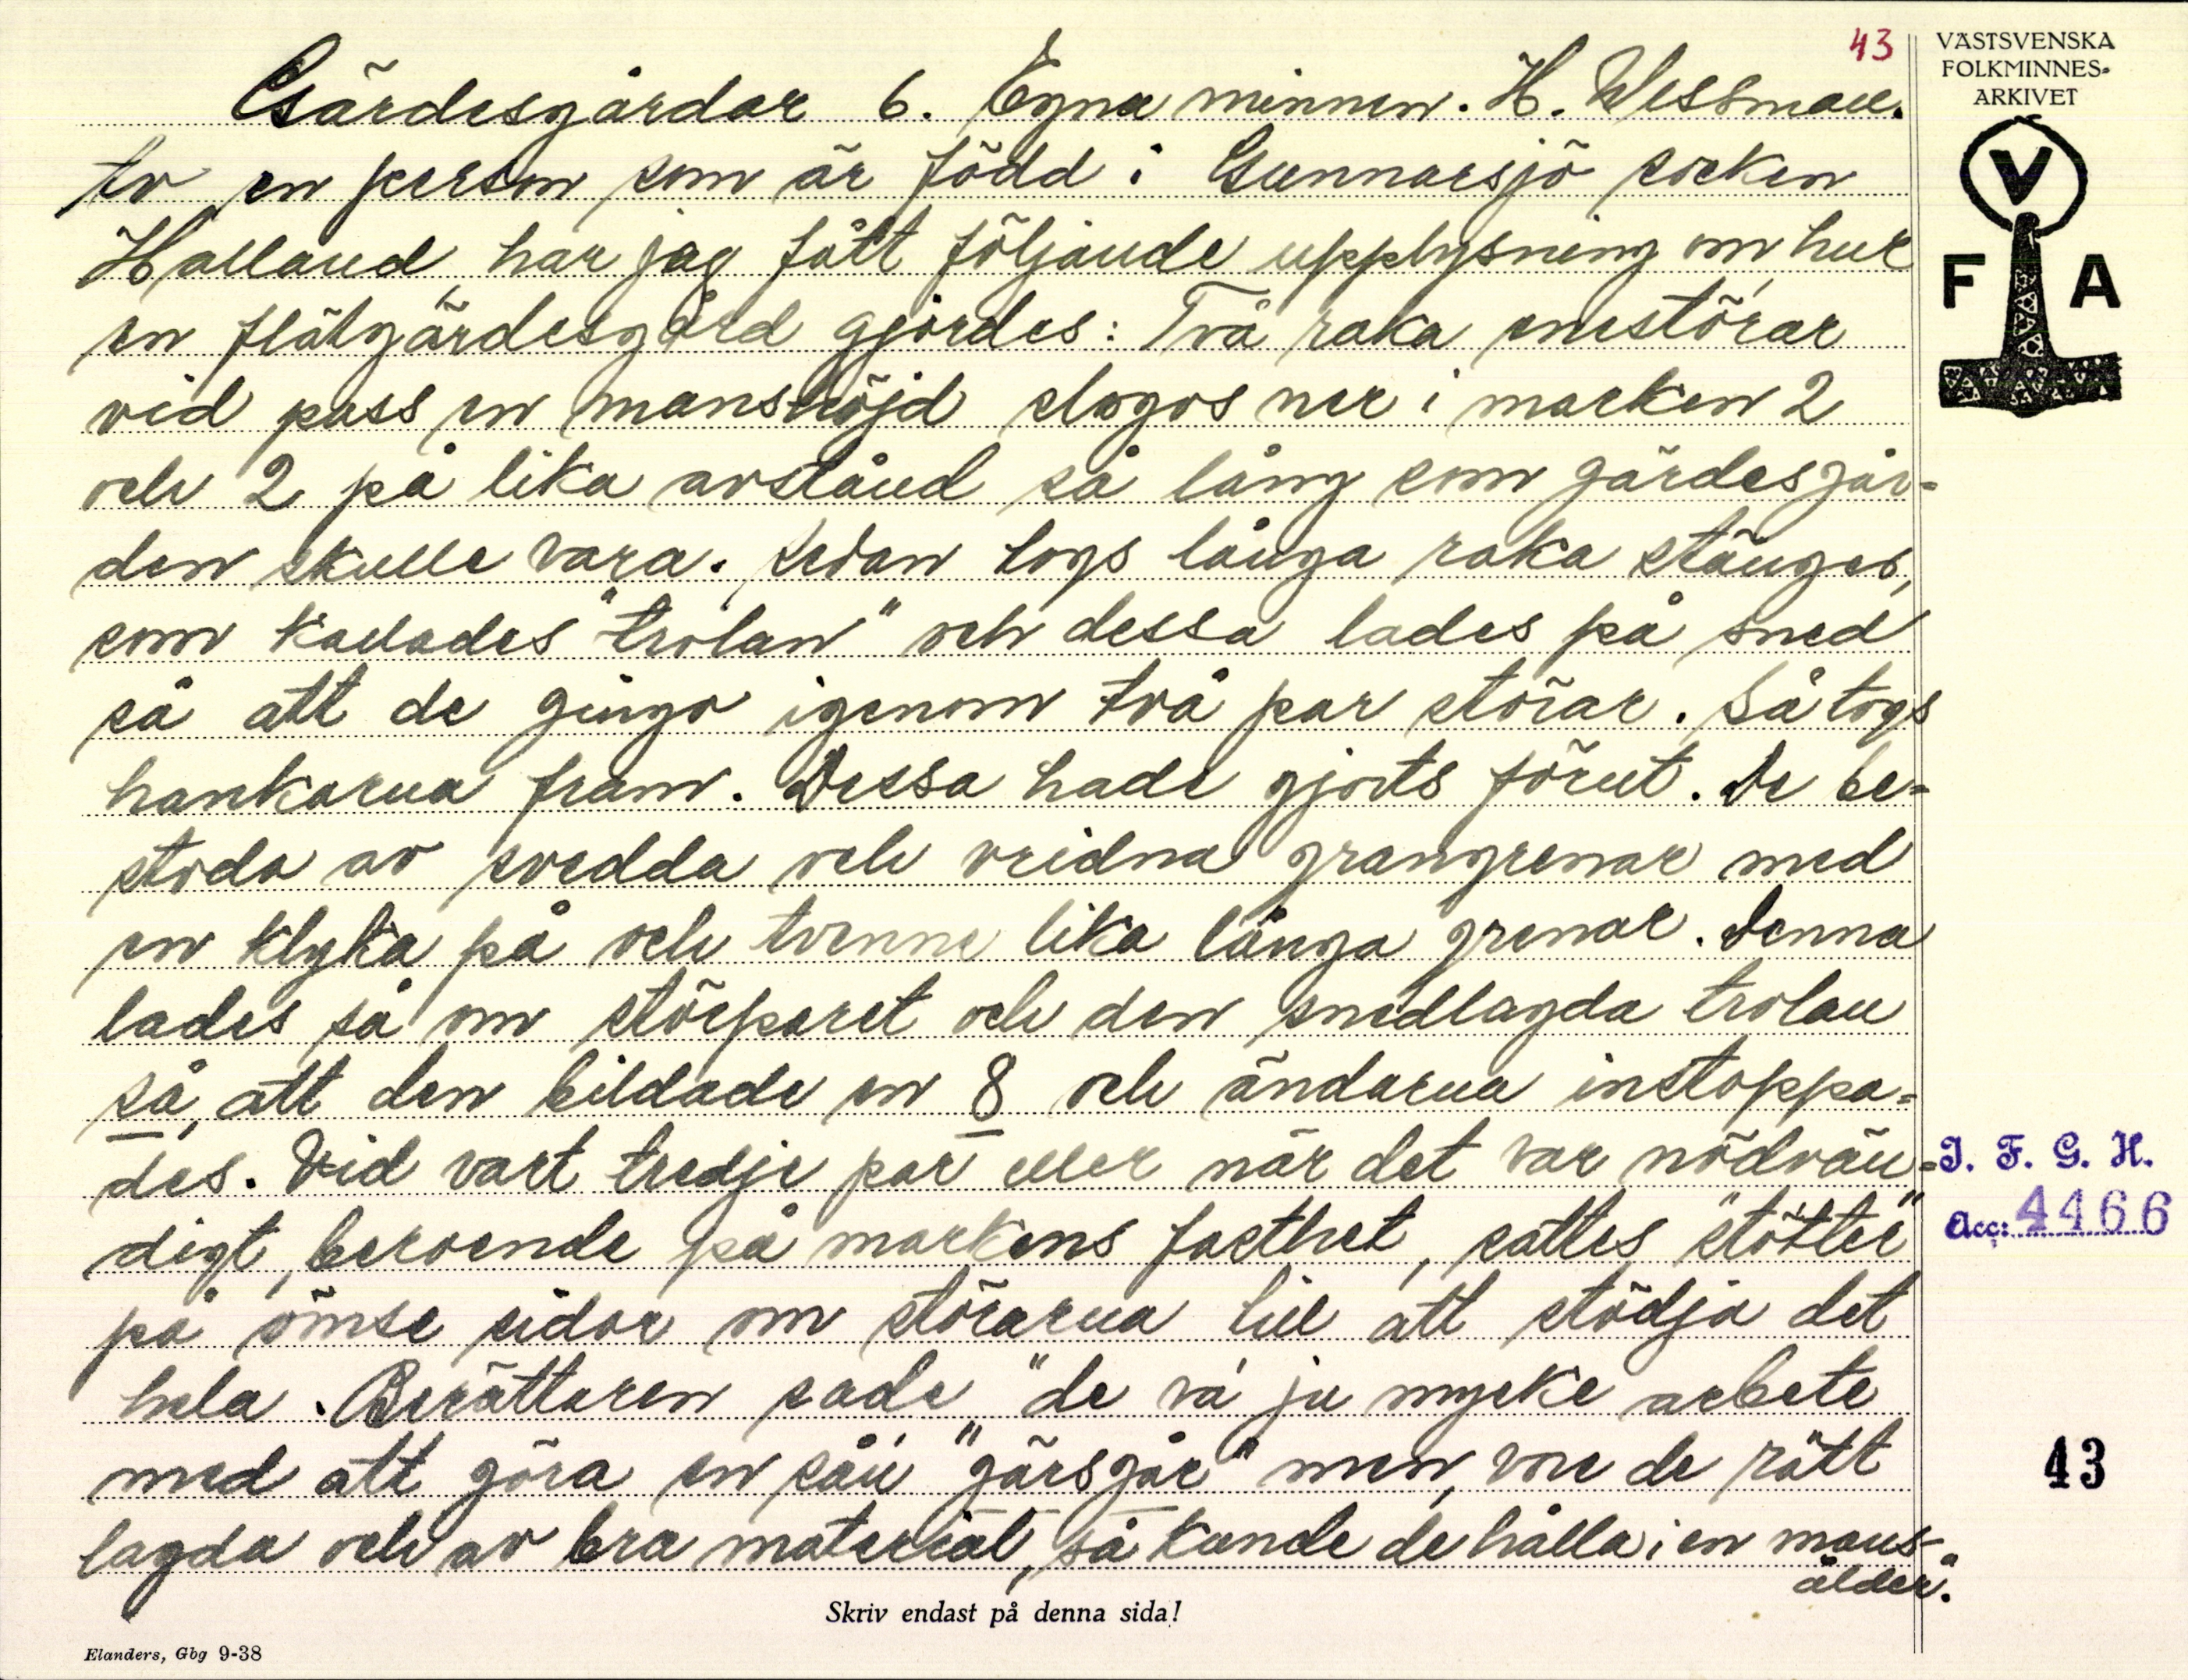 43
VÄSTSVENSKA
FOLKMINNES-
ARKIVET
V
F A
Gärdesgårdar 6. Egna minnen. H. Wessman.
Av en person som är född i Gunnarsjö socken
Halland, har jag fått följande upplysning om, hur
en flätgärdesgård gjordes: Två raka enestörar
vid pass en manshöjd slogos ner i marken 2
och 2 på lika avstånd så lång som gärdesgår=
den skulle vara. Sedan togs långa raka stänger,
som kallades "trolan" och dessa lades på sned
så att de gingo igenom två par störar. Så togs
hankarna fram. Dessa hade gjorts förut. De be=
stodo av svedda och vridna grangrenar med
en klyka på och tvenne lika långa grenar. Denna
lades så om störparet och den snedlagda trolan
så, att den bildade en 8 och ändarna instoppa=
des. Vid vart tredje par eller när det var nödvän=
digt, beroende på markens fasthet, sattes "stötter"
på ömse sidor om störarna till att stödja det
hela. Berättaren sade "de va' ju mycke arbete
med att göra en så'n "gärsgår" men, vore de rätt
lagda och av bra material, så kunde de hålla i en mans-
ålder".
I. F. G. H.
Acc: 4466
43
Skriv endast på denna sida!
Elanders, Gbg 9-38